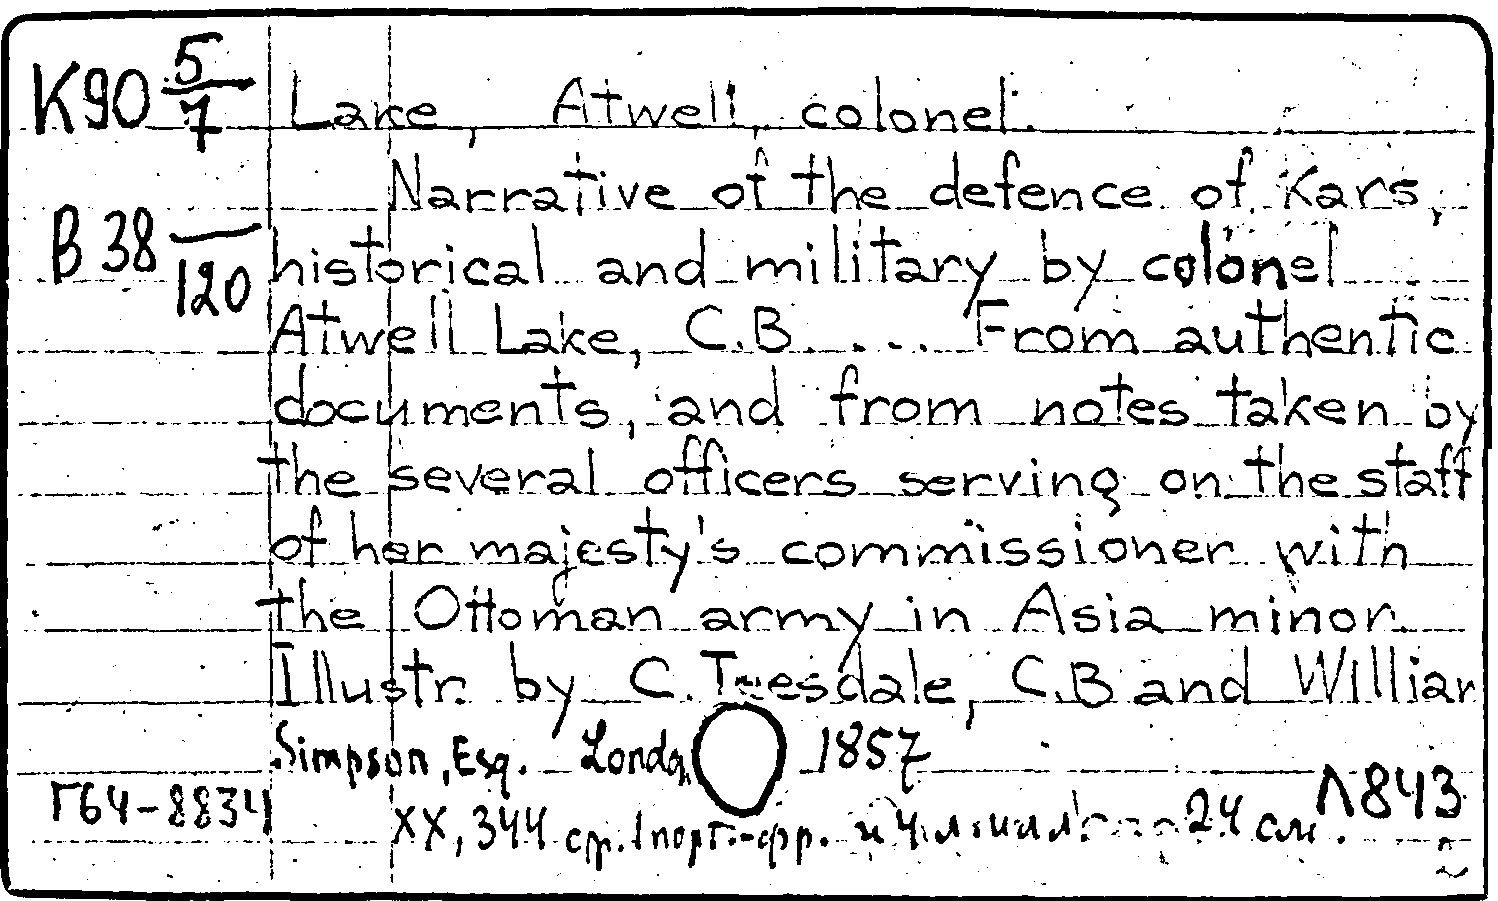 K90 5/7 Lake, Atwell, colonel.
Narrative of the defence of Kars,
B 38 —/120 historical and military by colonel
Atwell Lake, C.B. ... From authentic
documents, and from notes taken by
the several officers serving on the staff
of her majesty's commissioner with
the Ottoman army in Asia minor.
Illustr. by C. Teesdale, C.B and William
Simpson, Esq. London 1857
Г64-8834 Л843
XX, 344 ср. 1 порт.-фр. и 4 л. илл. 24 см.